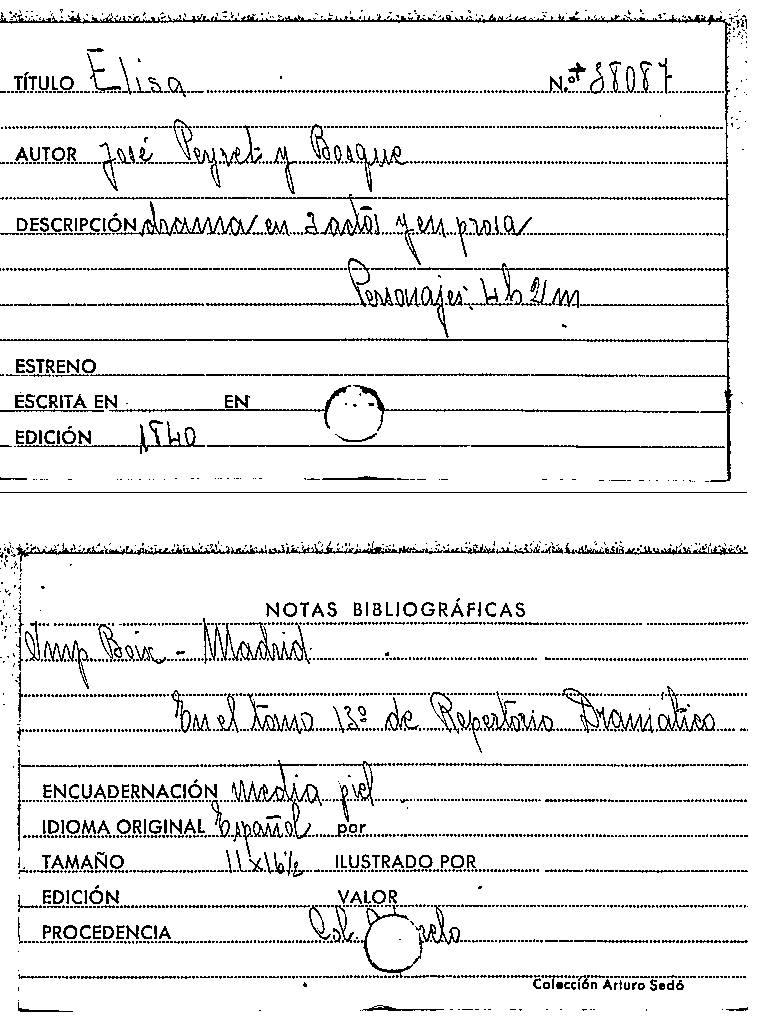 TÍTULO Elisa N.o+ 38087
AUTOR José Peyret y Bosque
DESCRIPCIÓN drama en 3 actos y en prosa
Personajes: 4h 2m
ESTRENO
ESCRITA EN EN
EDICIÓN 1840
NOTAS BIBLIOGRÁFICAS
Imp Boix - Madrid
En el tomo 13º de Repertorio Dramático
ENCUADERNACIÓN Media piel
IDIOMA ORIGINAL Español por
TAMAÑO 11x16½ ILUSTRADO POR
EDICIÓN VALOR
PROCEDENCIA Col.
Colección Arturo Sedó